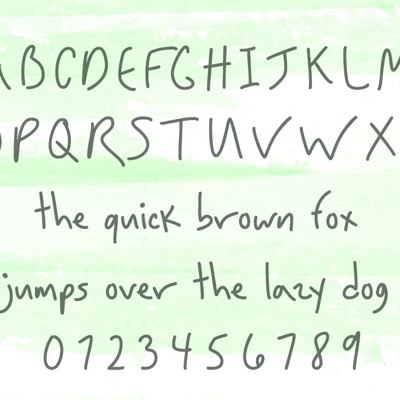 ABCDEFGHIJKLM
OPQRSTUVWX
the quick brown fox
jumps over the lazy dog
0123456789